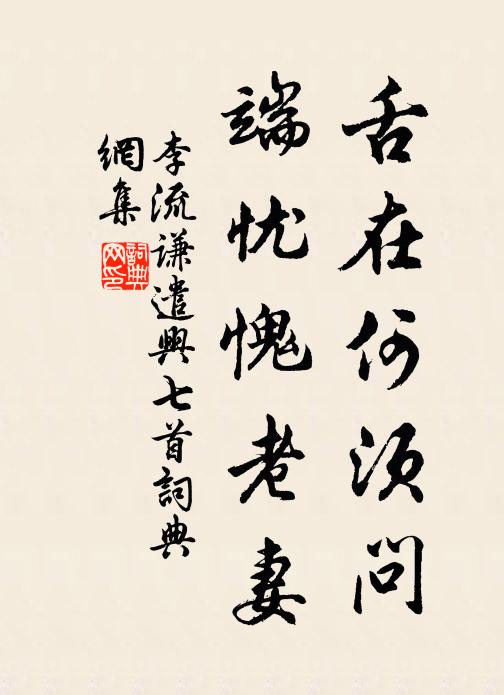 舌在何須問
端忧愧老妻
李流谦遣興七首詞典
網集
詞典網印